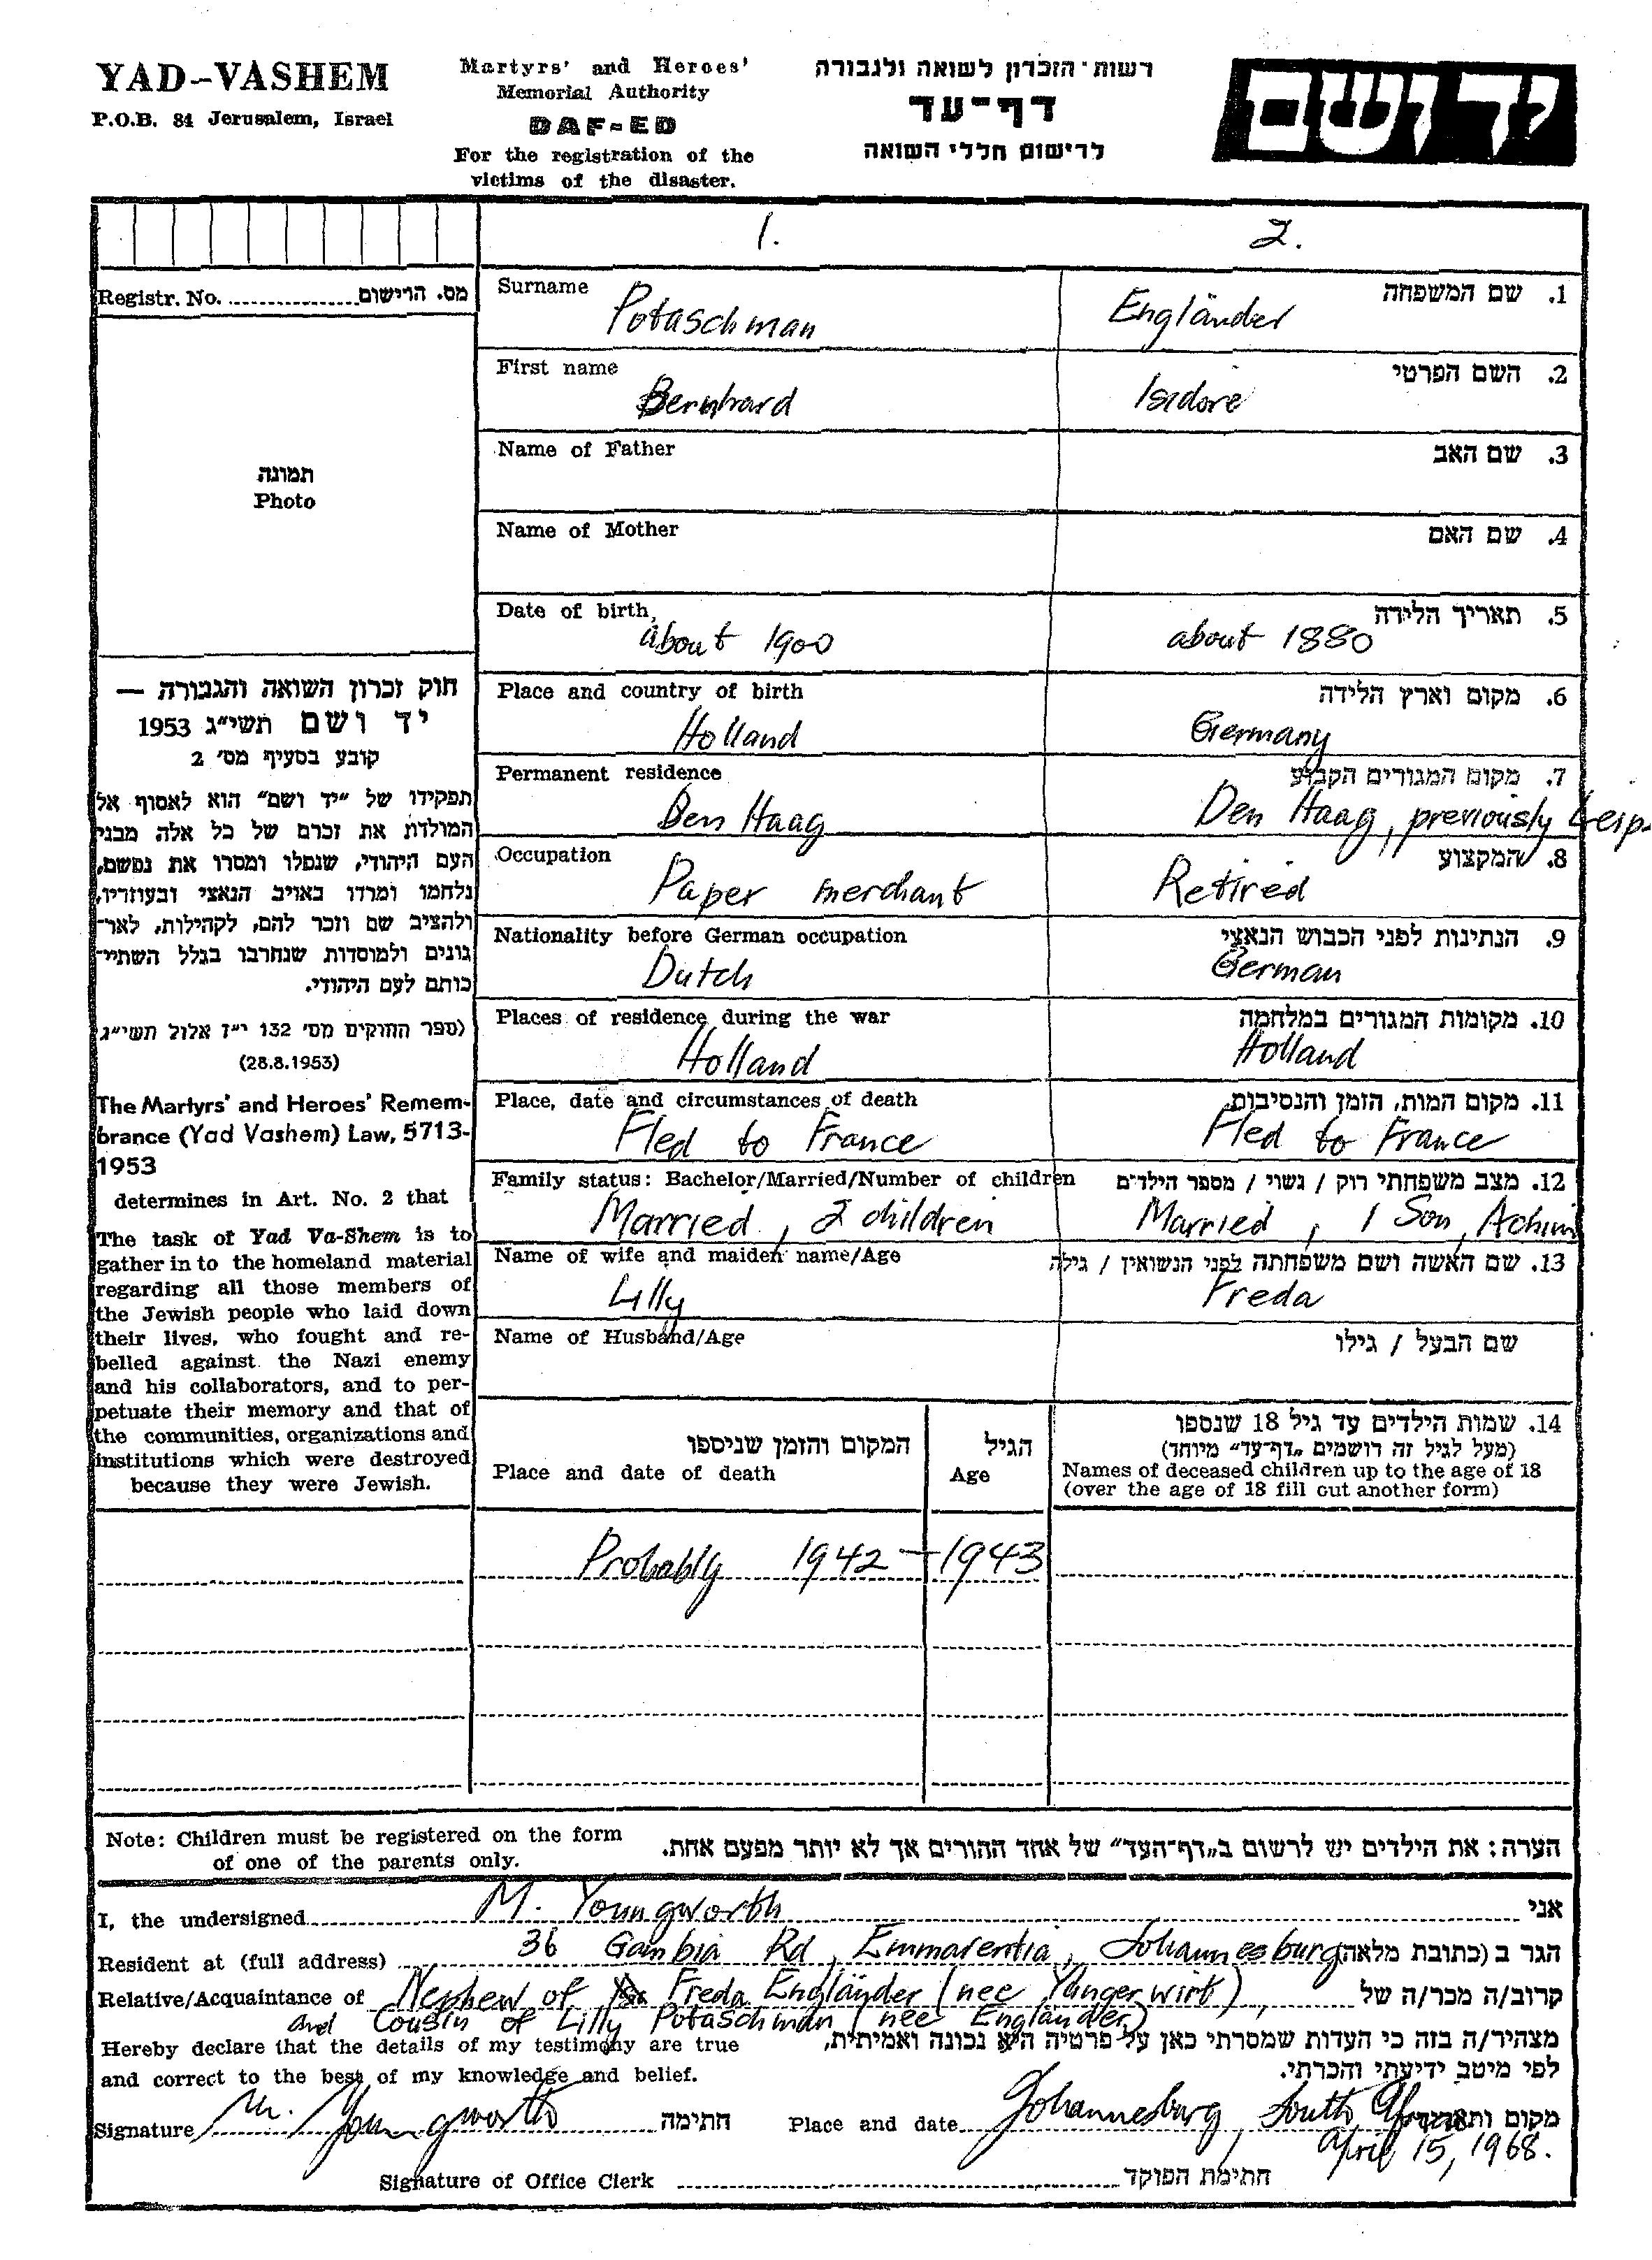 YAD-VASHEM
P.O.B. 84 Jerusalem, Israel
Martyrs' and Heroes'
Memorial Authority
DAF-ED
For the registration of the
victims of the disaster.
רשות הזכרון לשואה ולגבורה
דף-עד
לרישום חללי השואה
יד ושם
1. 2.
Registr. No. מס. הרישום
תמונה
Photo
חוק זכרון השואה והגבורה —
יד ושם תשי"ג 1953
קובע בסעיף מס' 2
תפקידו של "יד ושם" הוא לאסוף אל
המולדת את זכרם של כל אלה מבני
העם היהודי, שנפלו ומסרו את נפשם,
נלחמו ומרדו באויב הנאצי ובעוזריו,
ולהציב שם וזכר להם, לקהילות, לאר-
גונים ולמוסדות שנחרבו בגלל השתיי-
כותם לעם היהודי.
(ספר החוקים מס' 132 י"ז אלול תשי"ג
(28.8.1953)
The Martyrs' and Heroes' Remem-
brance (Yad Vashem) Law, 5713-
1953
determines in Art. No. 2 that
The task of Yad Va-Shem is to
gather in to the homeland material
regarding all those members of
the Jewish people who laid down
their lives, who fought and re-
belled against the Nazi enemy
and his collaborators, and to per-
petuate their memory and that of
the communities, organizations and
institutions which were destroyed
because they were Jewish.
Surname 1. שם המשפחה
Potaschman Engländer
First name 2. השם הפרטי
Bernhard Isidore
Name of Father 3. שם האב
Name of Mother 4. שם האם
Date of birth 5. תאריך הלידה
about 1900 about 1880
Place and country of birth 6. מקום וארץ הלידה
Holland Germany
Permanent residence 7. מקום המגורים הקבוע
Den Haag Den Haag, previously
Occupation 8. המקצוע
Paper merchant Retired
Nationality before German occupation 9. הנתינות לפני הכבוש הנאצי
Dutch German
Places of residence during the war 10. מקומות המגורים במלחמה
Holland Holland
Place, date and circumstances of death 11. מקום המות, הזמן והנסיבות
Fled to France Fled to France
Family status: Bachelor/Married/Number of children 12. מצב משפחתי רוק / נשוי / מספר הילדים
Married, 2 children Married, 1 Son, Achim
Name of wife and maiden name/Age 13. שם האשה ושם משפחתה לפני הנשואין / גילה
Lilly Freda
Name of Husband/Age שם הבעל / גילו
המקום והזמן שניספו
Place and date of death
הגיל
Age
14. שמות הילדים עד גיל 18 שנספו
(מעל לגיל זה רושמים "דף-עד" מיוחד)
Names of deceased children up to the age of 18
(over the age of 18 fill out another form)
Probably 1942 - 1943
Note: Children must be registered on the form
of one of the parents only.
הערה: את הילדים יש לרשום ב"דף-העד" של אחד ההורים אך לא יותר מפעם אחת.
I, the undersigned M. Youngworth אני
Resident at (full address) 36 Gambia Rd, Emmarentia, Johannesburg הגר ב (כתובת מלאה
Relative/Acquaintance of Nephew of Freda Engländer (nee Yungerwirt), קרוב/ה מכר/ה של
and Cousin of Lilly Potaschman (nee Engländer)
Hereby declare that the details of my testimony are true
and correct to the best of my knowledge and belief.
מצהיר/ה בזה כי העדות שמסרתי כאן על פרטיה היא נכונה ואמיתית,
לפי מיטב ידיעתי והכרתי.
Signature M. Youngworth חתימה Place and date Johannesburg, South Africa מקום ותאריך
April 15, 1968.
Signature of Office Clerk חתימת הפוקד